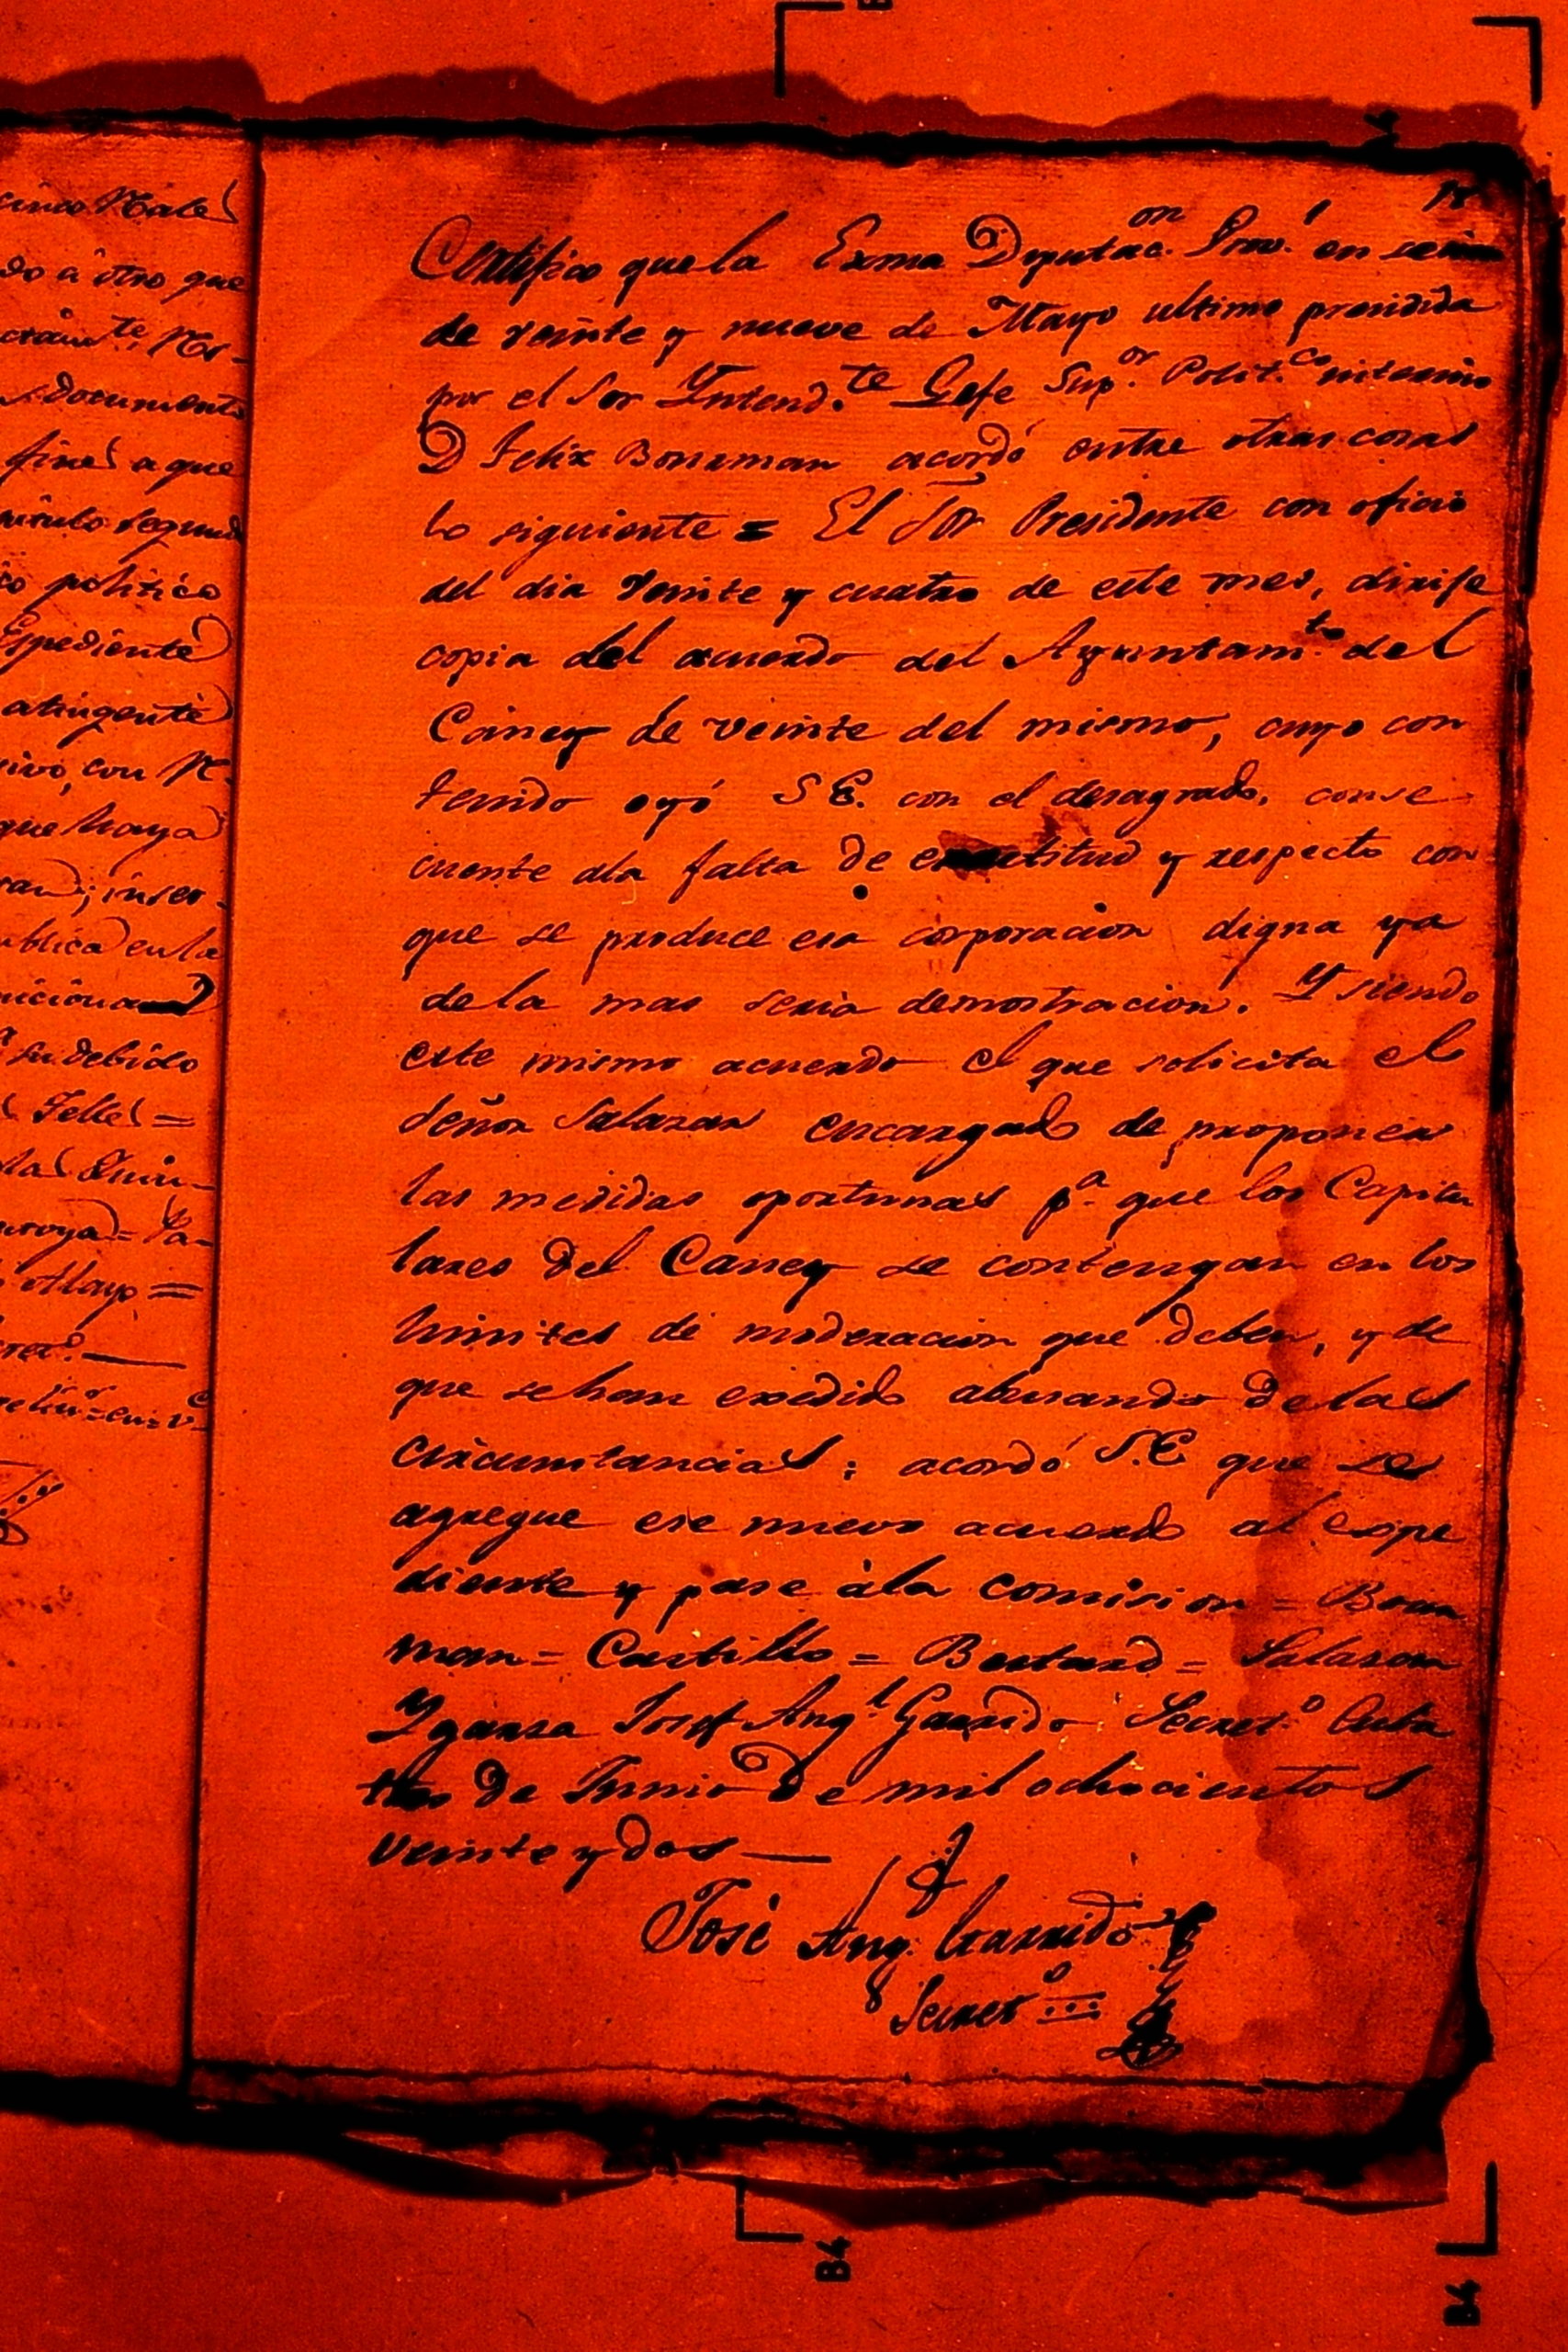 cinco Reales
do a otro que
documento
fines a que
segundo
co politico
Espediente
atingente
ivo, con R-
que haya
ran; inser-
ublica en la
a su debido
Telles =
Mayo =
Certifico que la Exma Diputac.on Prov.l en sesion
de veinte y nueve de Mayo ultimo presidida
por el Sor Yntend.te Gefe Sup.or Polit.co interino
D Felix Bourman acordó entre otras cosas
lo siguiente = El Sor Presidente con oficio
del dia veinte y cuatro de este mes, dirije
copia del acuerdo del Ayuntam.to del
Caney de veinte del mismo, cuyo con
tenido oyó S E. con el desagrado, conse
cuente ala falta de exactitud y respecto con
que se produce esa corporacion digna ya
de la mas seria demostracion. Y siendo
este mismo acuerdo el que solicita el
Señor Salazar encargado de proponer
las medidas oportunas p.a que los Capitu
lares del Caney se contengan en los
limites de moderacion que deben, y de
que se han exedido abusando de las
circumstancias; acordó S.E que se
agregue ese nuevo acuerdo al espe
diente y pase ála comision = Bour
man = Castillo = Bestard = Salazar
Ygarza Josef Ang.l Garrido Secret.o Cuba
tres de Junio de mil ochocientos
veinte y dos —
José Ang. Garrido
Secret.o
B4
B4